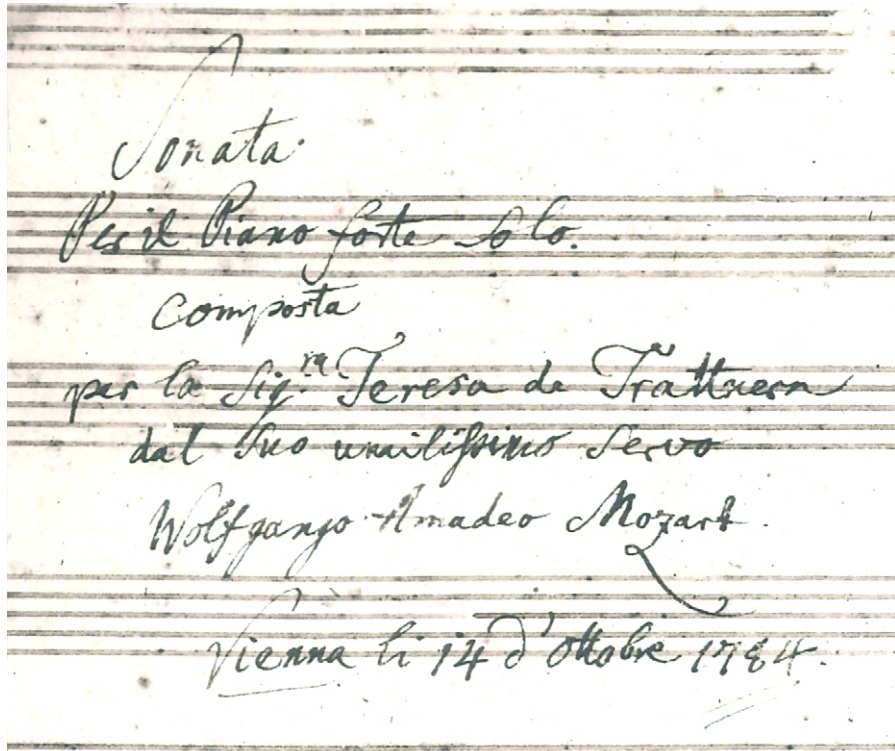 Sonata.
Per il Piano forte solo.
composta
per la Sig:ra Teresa de Trattnern
dal suo umilissimo servo
Wolfgango Amadeo Mozart.
Vienna li 14 d'ottobre 1784.